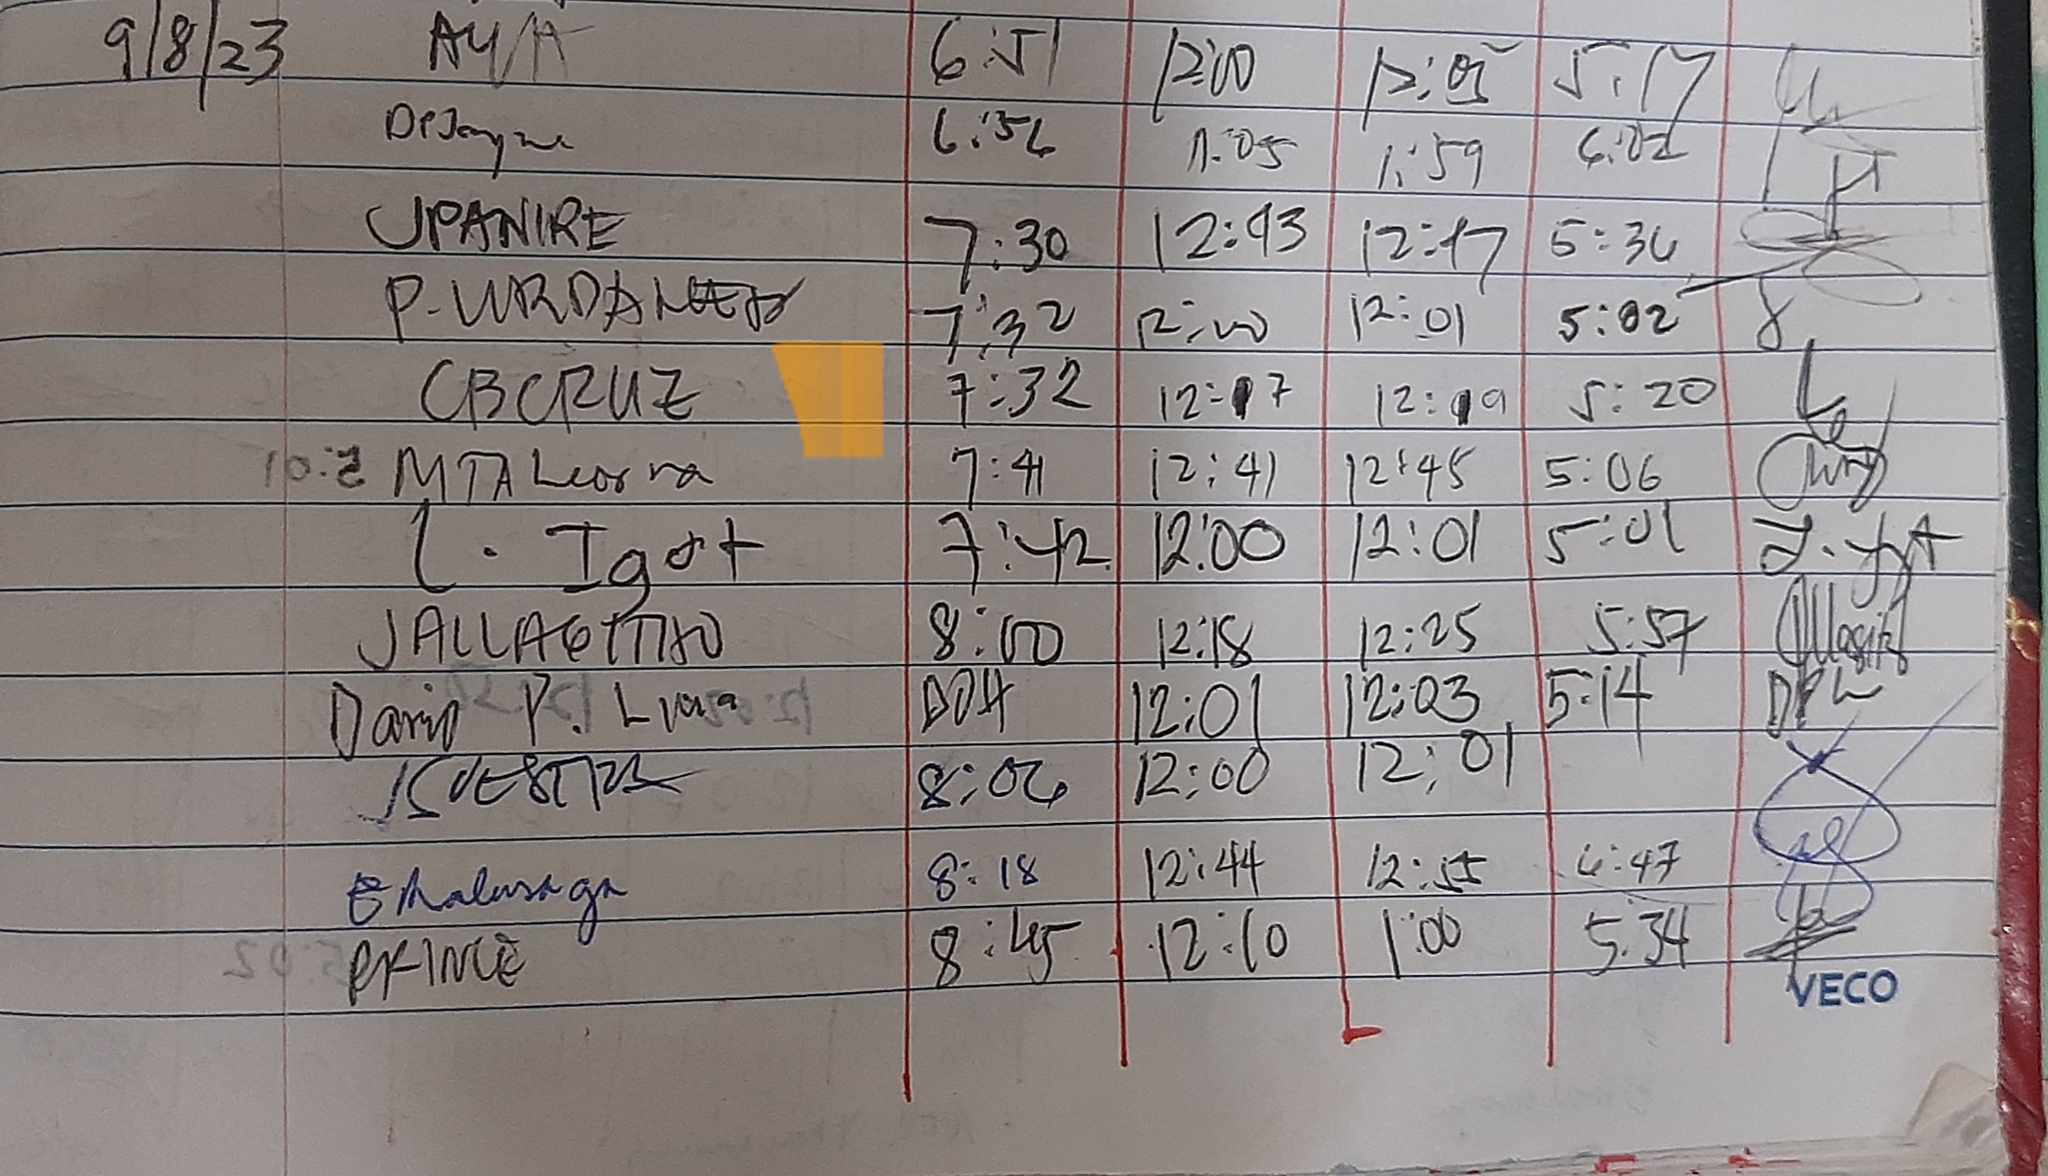 9/8/23 AY/A 6:51 12:00 12:05 5:17
6:56 1:05 1:59 6:02
JPANIRE 7:30 12:43 12:47 5:36
P. URDANETA 7:32 12:00 12:01 5:02
CBCRUZ 7:32 12:17 12:19 5:20
MTALeorna 7:41 12:41 12:45 5:06
L. Igot 7:42 12:00 12:01 5:01
8:00 12:18 12:25 5:57
P. Luna 12:01 12:03 5:14 DPL
8:06 12:00 12:01
8:18 12:44 12:55 6:47
PRINCE 8:45 12:10 1:00 5:34
VECO